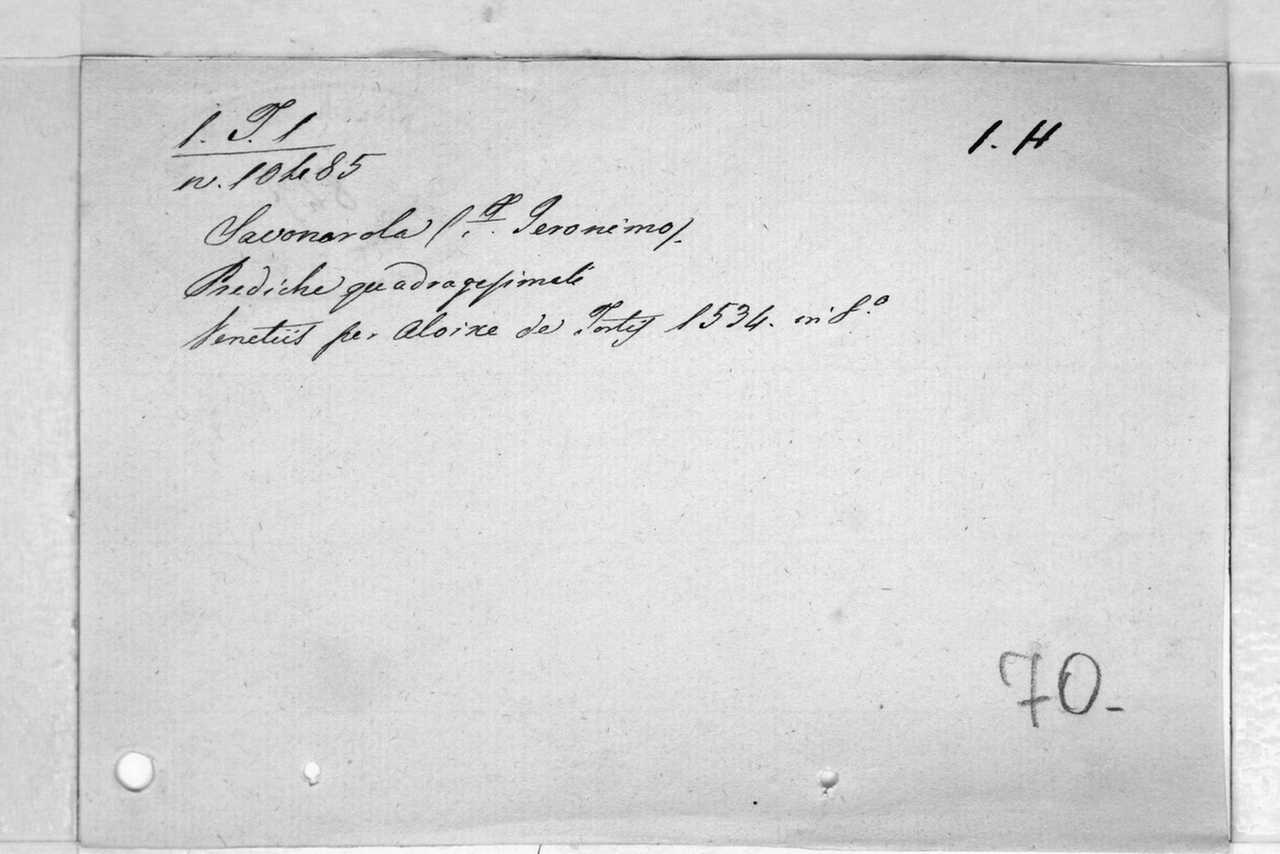 1. T. 1
1. H
n. 10485
Savonarola (F. Jeronimo).
Prediche quadragesimali
Venetiis per Aloixe de Tortis 1534. in 8.º
70-